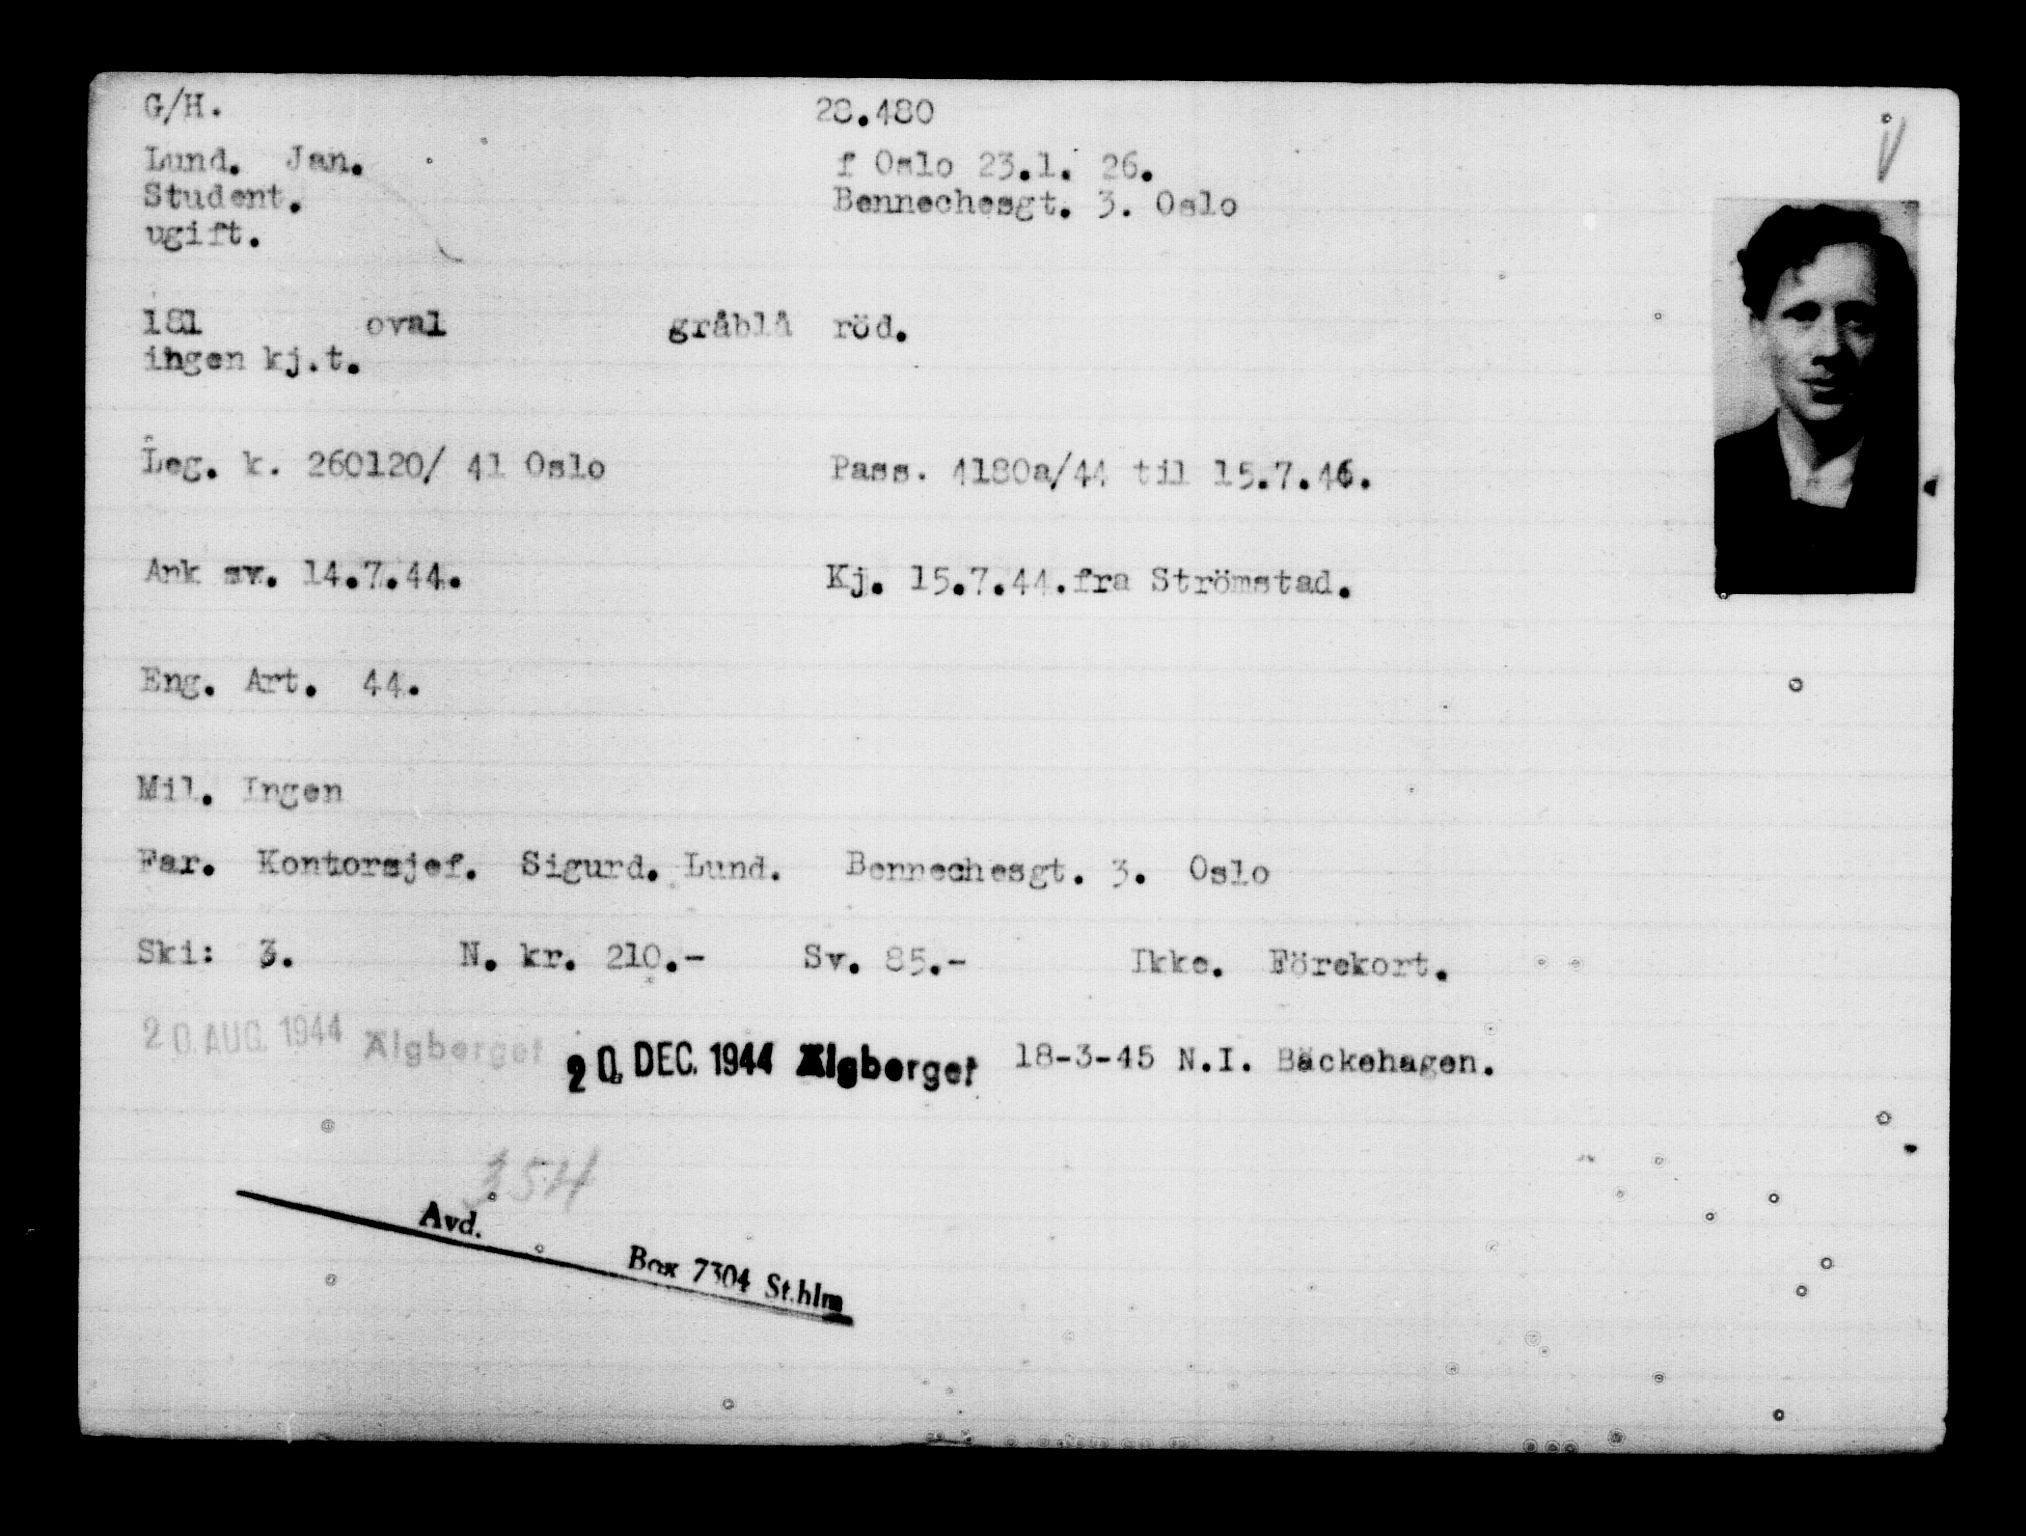 G/H. 28.480
Lund. Jan. f Oslo 23.1. 26.
Student. Bennechesgt. 3. Oslo
ugift.
181 oval gråblå röd.
ingen kj.t.
Leg. k. 260120/ 41 Oslo Pass. 4180a/44 til 15.7.46.
Ank sv. 14.7.44. Kj. 15.7.44.fra Strömstad.
Eng. Art. 44.
Mil. Ingen
Far. Kontorsjef. Sigurd. Lund. Bennechesgt. 3. Oslo
Ski: 3. N. kr. 210.- Sv. 85.- Ikke. Förekort.
20. AUG. 1944 Älgberget 20. DEC. 1944 Älgberget 18-3-45 N.I. Bäckehagen.
354
Avd.
Box 7304 St.hlm